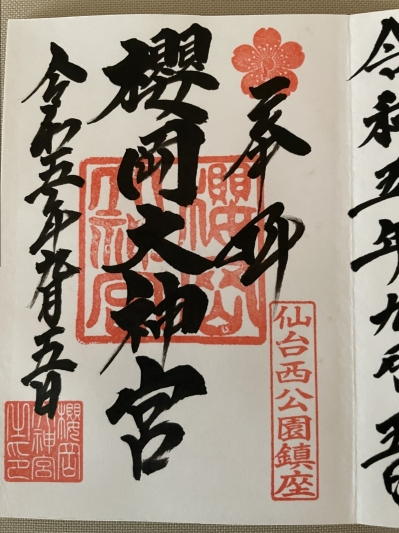 令和五年九月五日
奉拝
仙台西公園鎮座
櫻岡大神宮
櫻岡
大神宮
令和五年九月五日
櫻岡
神宮
之印